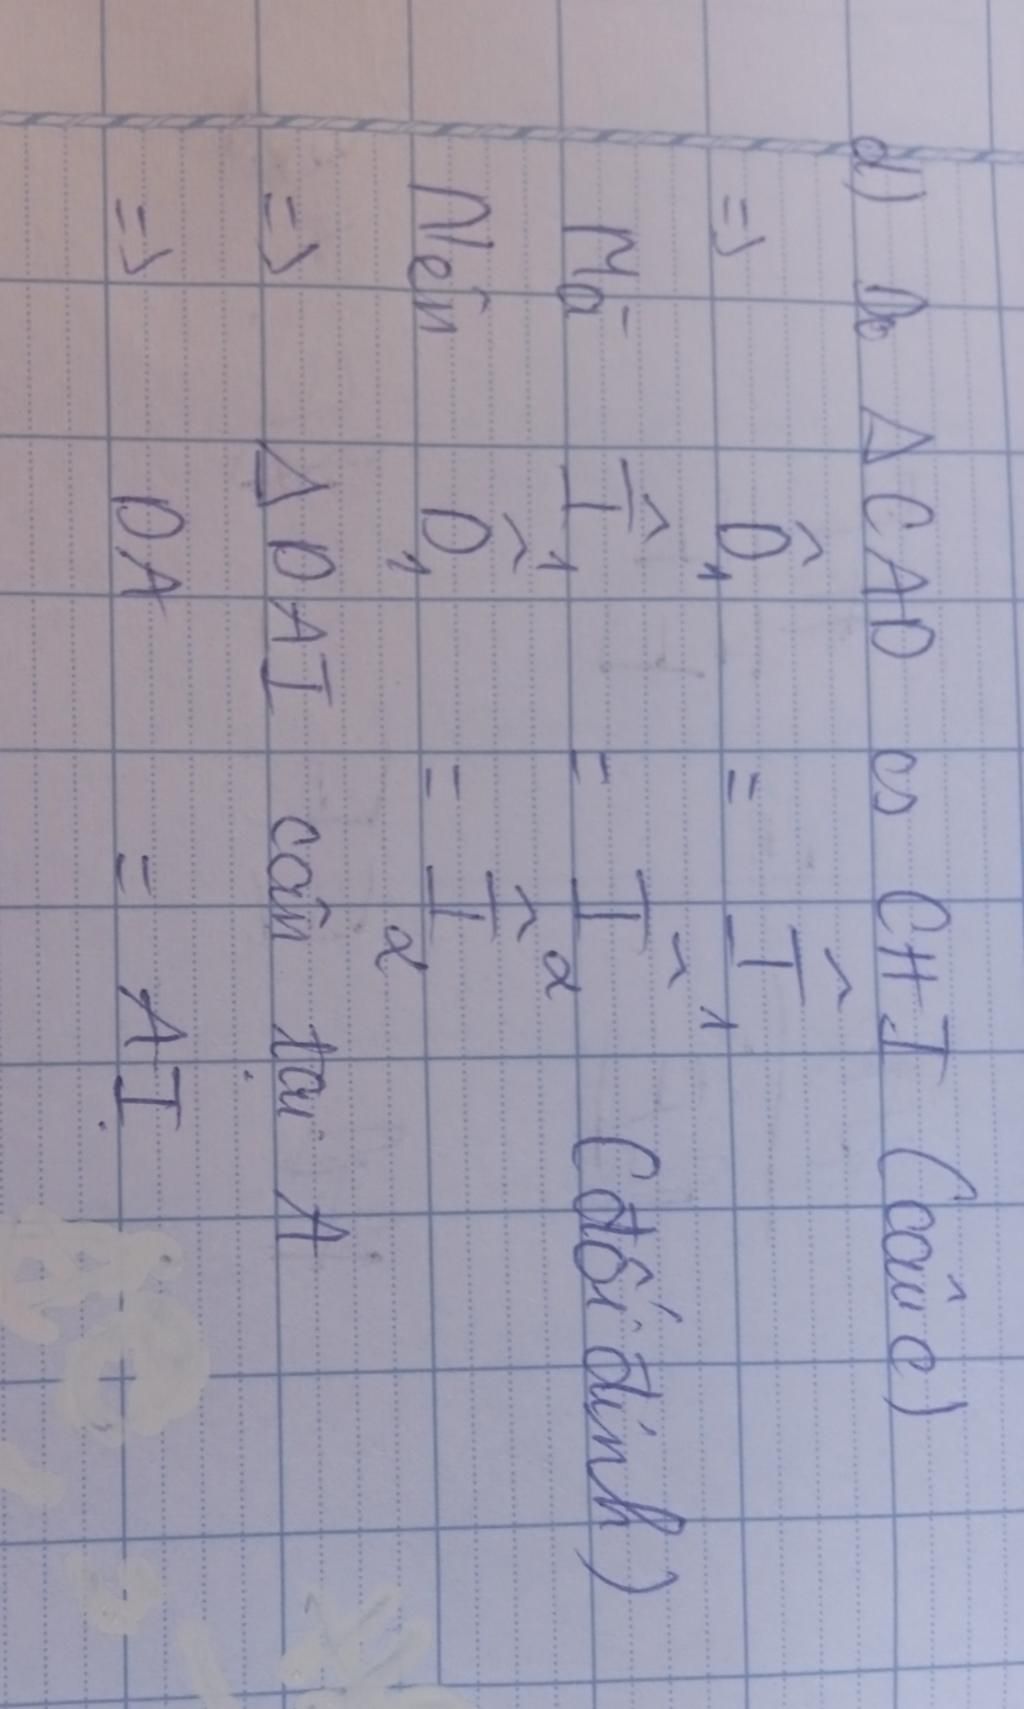 d) Do Δ CAD ∽ CHI (câu c)
=> D̂₁ = Î₁
Mà Î₁ = Î₂ (đối đỉnh)
Nên D̂₁ = Î₂
=> Δ DAI cân tại A
=> DA = AI.